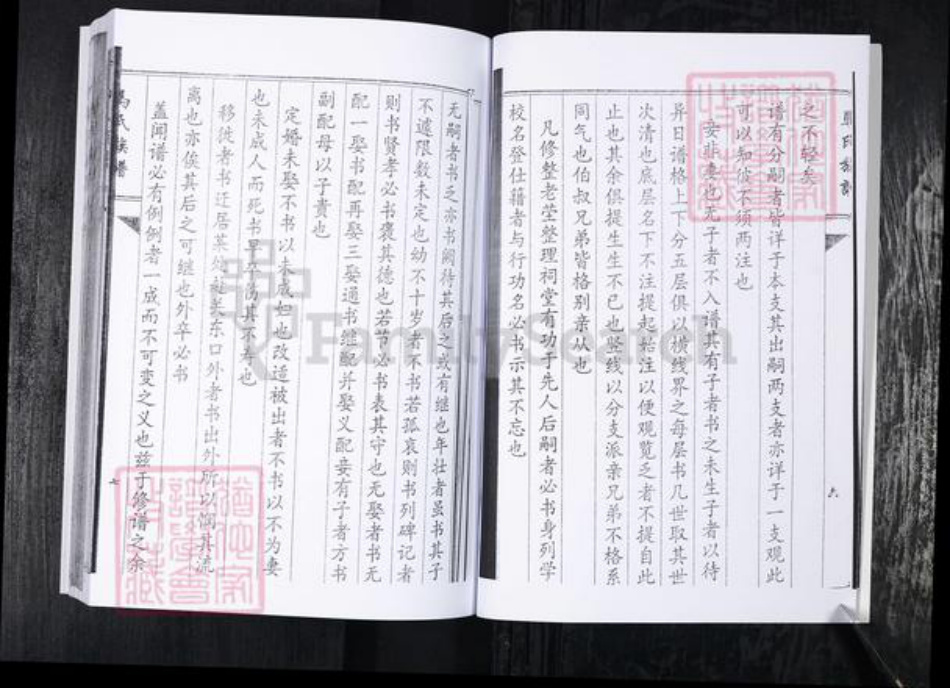 之不轻矣
谱有分嗣者皆详于本支其出嗣两支者亦详于一支观此
可以知彼不须两注也
妾非妻也无子者不入谱其有子者书之未生子者以待
异日谱格上下分五层俱以横线界之每层书几世取其世
次清也底层名下不注提起帖注以便观览乏者不提自此
止也其余俱提生生不已也竖线以分支派亲兄弟不格系
同气也伯叔兄弟皆格别亲从也
凡修整老茔整理祠堂有功于先人后嗣者必书身列学
校名登仕籍者与行功名必书示其不忘也
六
无嗣者书乏亦书阙待其后之或有继也年壮者虽书其子
不遽限数未定也幼不十岁者不书若孤哀则书列碑记者
则书贤孝必书褒其德也若节必书表其守也无娶者书无
配一娶书配再娶三娶通书继配并娶义配妾有子者方书
副配母以子贵也
定婚未娶不书以未成妇也改适被出者不书以不为妻
也未成人而死书早卒伤其不寿也
移徙者书迁居某处赴关东口外者书出外所以悯其流
离也亦俟其后之可继也外卒必书
盖闻谱必有例例者一成而不可变之义也兹于修谱之余
氏族谱
七
FamilySearch